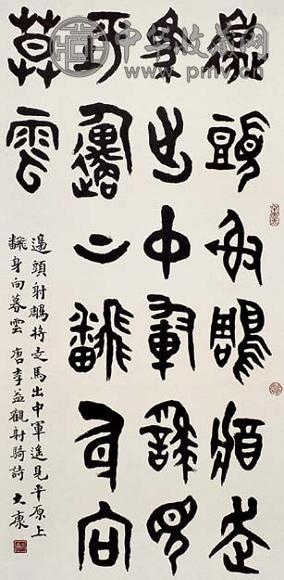 中华收藏网
www.pmv.cn
邊頭射鵰將走
馬出中軍遙見
平原上飜身向
暮雲
邊頭射鵰將走馬出中軍遙見平原上
飜身向暮雲 唐李益觀射騎詩 大康